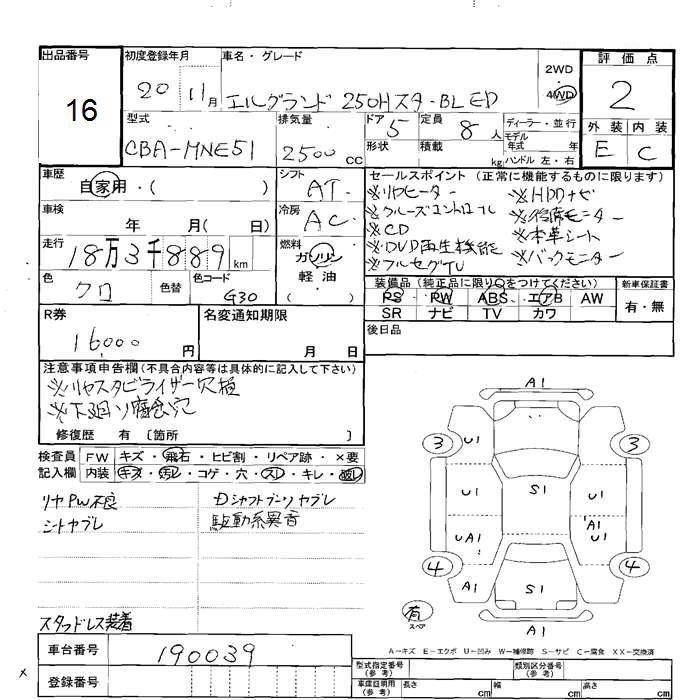 出品番号
16
初度登録年月
20 11月
車名・グレード
エルグランド 250Hスター BL ED
2WD
4WD
評価点
2
外装 内装
E C
型式
CBA-MNE51
排気量
2500 cc
ドア 5
定員 8 人
ディーラー・並行
モデル
年式 年
形状
積載 kg
ハンドル 左・右
車歴
自家用・( )
シフト
AT
セールスポイント (正常に機能するものに限ります)
※リヤヒーター
※クルーズコントロール
※CD
※DVD再生機能
※フルセグTV
※HDDナビ
※後席モニター
※本革シート
※バックモニター
車検
年 月( 日)
冷房
AC
走行
18万3千889km
燃料
ガソリン
軽油
( )
色
クロ
色替
色コード
G30
装備品 (純正品に限り○をつけてください)
PS RW ABS エアB AW
SR ナビ TV カワ
新車保証書
有・無
R券
16,000 円
名変通知期限
月 日
後日品
注意事項申告欄(不具合内容等は具体的に記入して下さい)
※リヤスタビライザー欠損
※下廻り腐食穴
修復歴 有 〔箇所 〕
検査員
記入欄
FW キズ・飛石・ヒビ割・リペア跡・×要
内装 キズ・汚レ・コゲ・穴・スレ・キレ・破レ
リヤPW不良
シートヤブレ
Dシャフトブーツヤブレ
駆動系異音
スタッドレス装着
A1
3
U1
3
U1
S1
U1
UA1
A1
U1
4
A1
S1
4
A1
有
スペア
A1
A-キズ E-エクボ U-凹み W-補修跡 S-サビ C-腐食 XX-交換済
車台番号
190039
登録番号
型式指定番号
(参考)
類別区分番号
(参考)
車庫証明用
(参考)
長さ cm
幅 cm
高さ cm
×